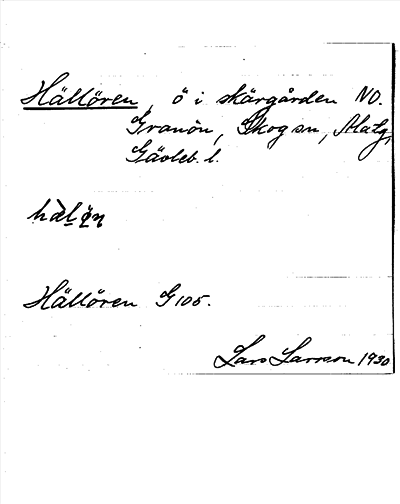 Hällören, ö i skärgården NO.
Granön, Skog sn,
Gävleb. l.
Hällören G 105.
Lars Larsson 1930